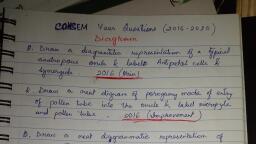 Year Questions (2016-2020)
Diagrams
Q. Draw a diagrammatic representation of a typical
anatropous ovule & label Antipodal cells &
synergids 2016 (Main)
Q. Draw a neat diagram of porogamy mode of entry
of pollen tube into the ovule & label micropyle
and pollen tube. 2016 (Improvement)
Q. Draw a neat diagrammatic representation of